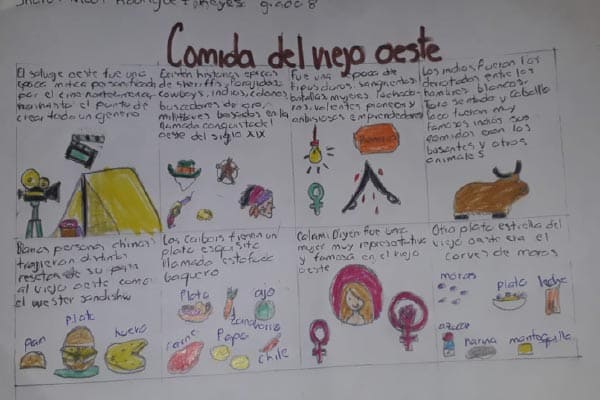 grado 8
Comida del viejo oeste
El salvge oeste fue una
epoca mitica
por el cine norteamericano
hasta el punto de
crear todo un genero
Existen historias epicas
de sheriffs, forajidos
cowboys, indios, colonos
buscadores de oro,
militares basados en la
llamada conquista del
oeste del siglo XIX
Fue una epoca de
tipus duros, sangrientas
batallas, mujeres luchado-
ras, valientes pioneros y
anbisiosos emprendedores
Los indios fueron los
derrotados entre los
hombres blancos.
Toro sentado y caballo
loco fueron muy
famosos indios sus
comidas eran los
y otros
animales
personas chinas
trajeron distintas
resetas de su pais
al viejo oeste como
el wester sandishw
pan
plato
huevo
Los tienen un
plato esquisito
llamado estofado
baquero
Plato
ajo
zanahoria
carne
Papa
chile
Calami Diyen fue una
mujer muy representativa
y famosa en el viejo
oeste
Otro plato estrella del
viejo oeste era el
de moras
moras
plato
leche
azucar
harina
mantequilla